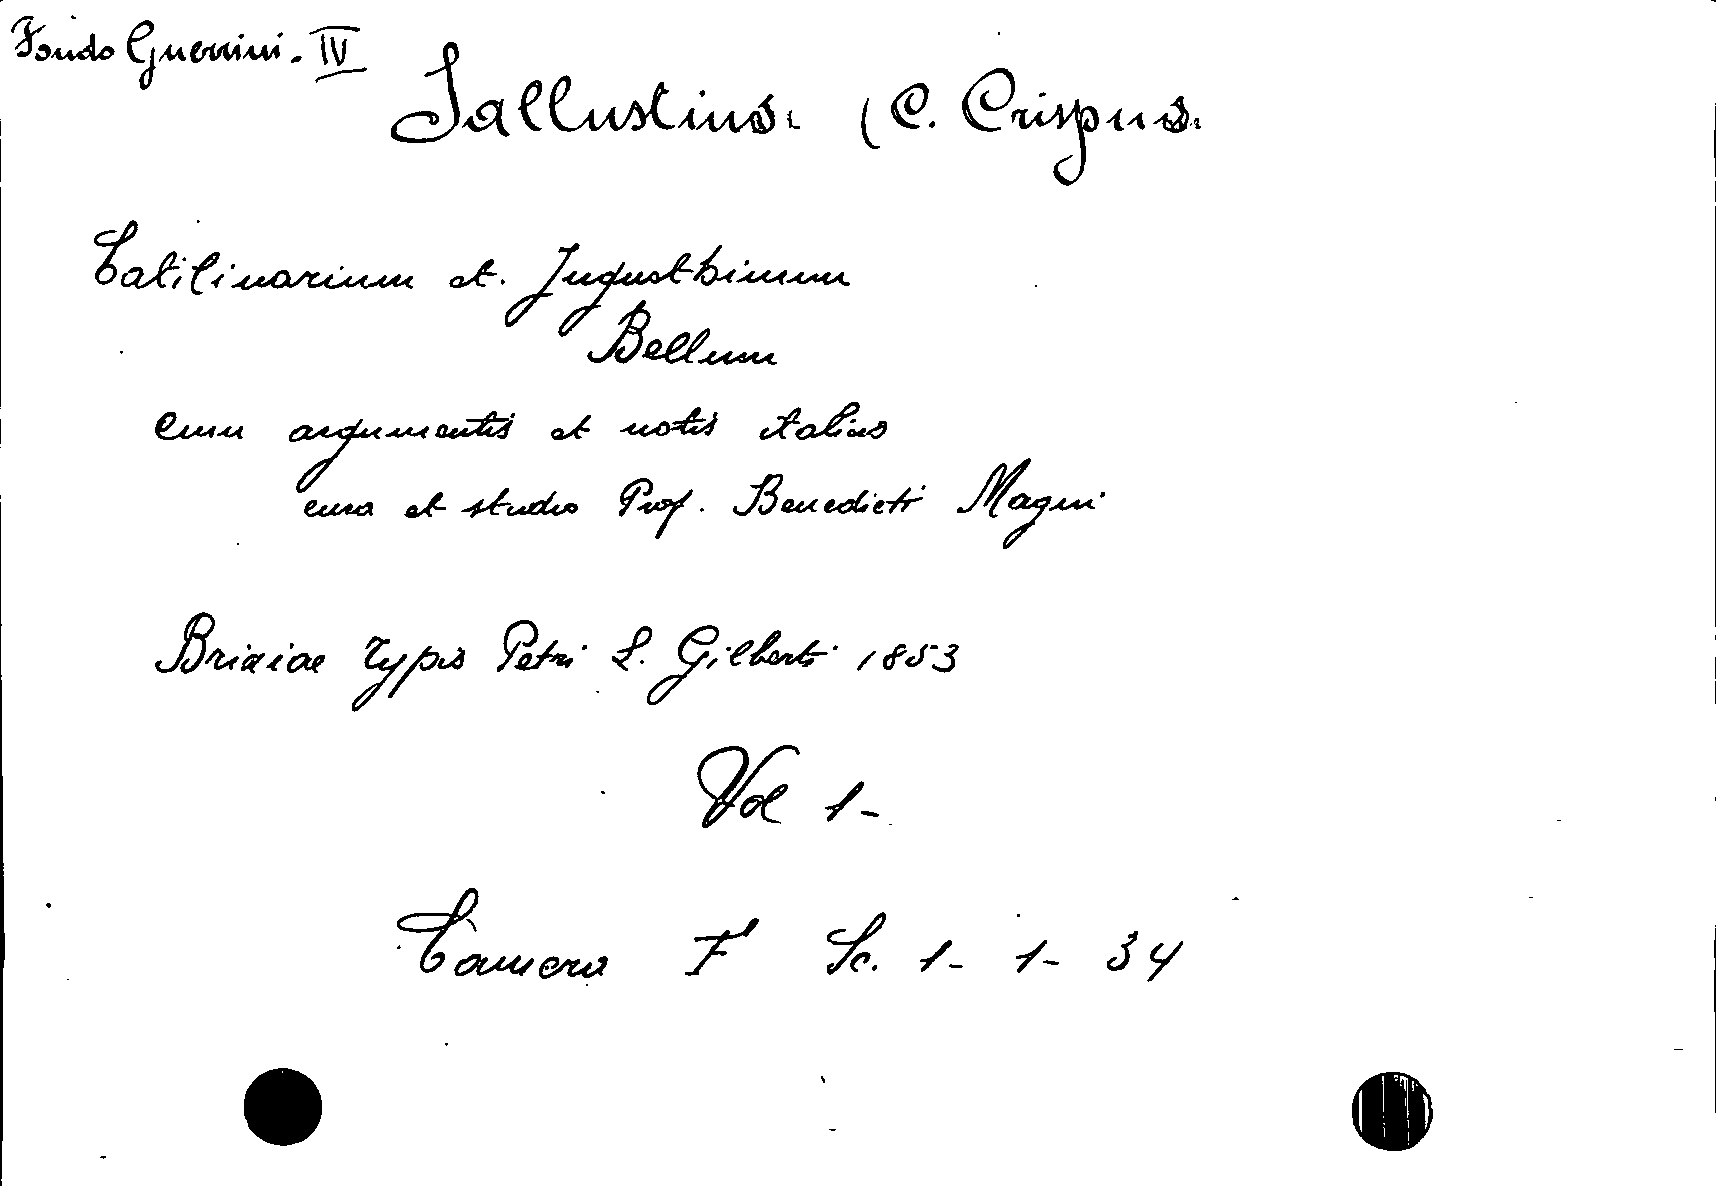 Fondo Guerrini. IV
Sallustius. (C. Crispus.
Catilinarium et. Jugusthinum
Bellum
Cum argumentis et notis italicis
cura et studio Prof. Benedicti Magni
Brixiae Typis Petri L. Gilberti 1853
Vol 1-
Camera F Sc. 1- 1- 34